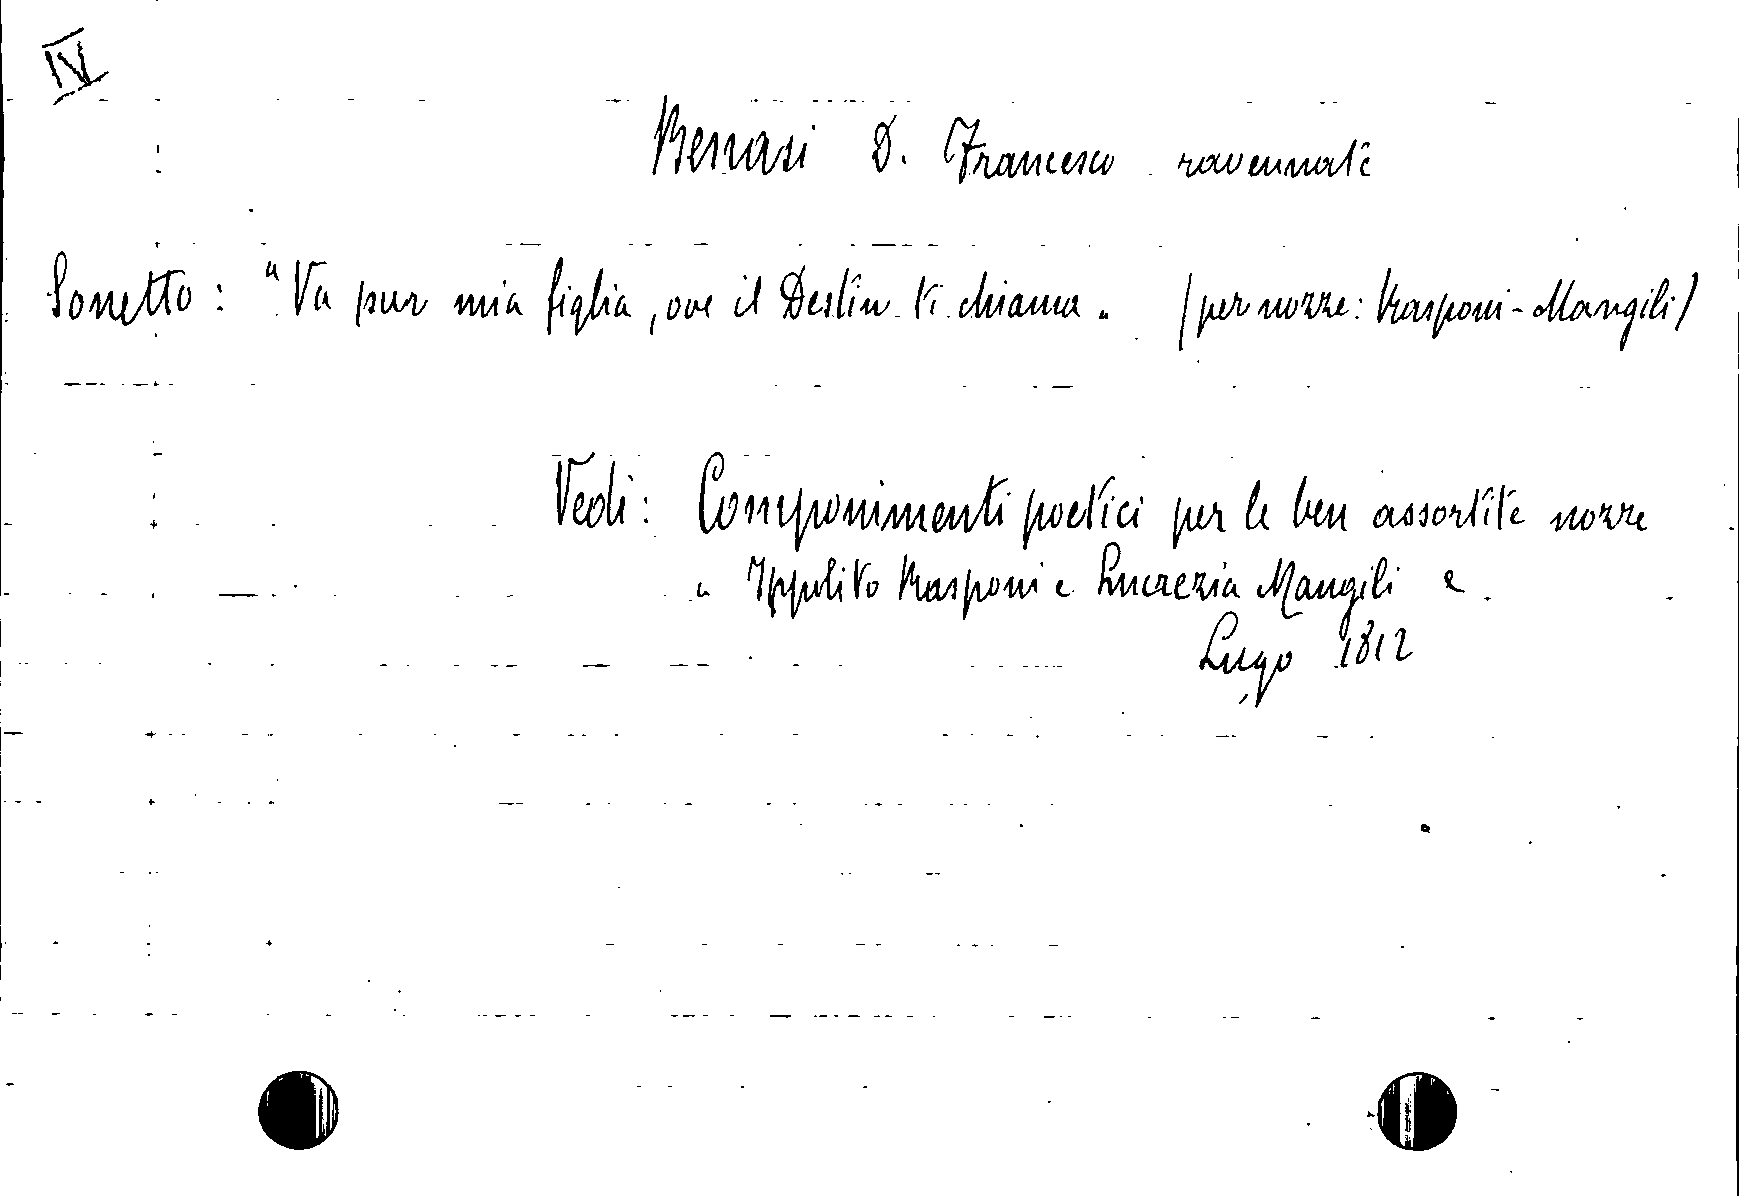 IV
Benasi D. Francesco ravennate
Sonetto: "Va pur mia figlia, ove il Destin ti chiama" (per nozze: Rasponi-Mangili)
Vedi: Componimenti poetici per le ben assortite nozze
" Ippolito Rasponi e Lucrezia Mangili e
Lugo 1812